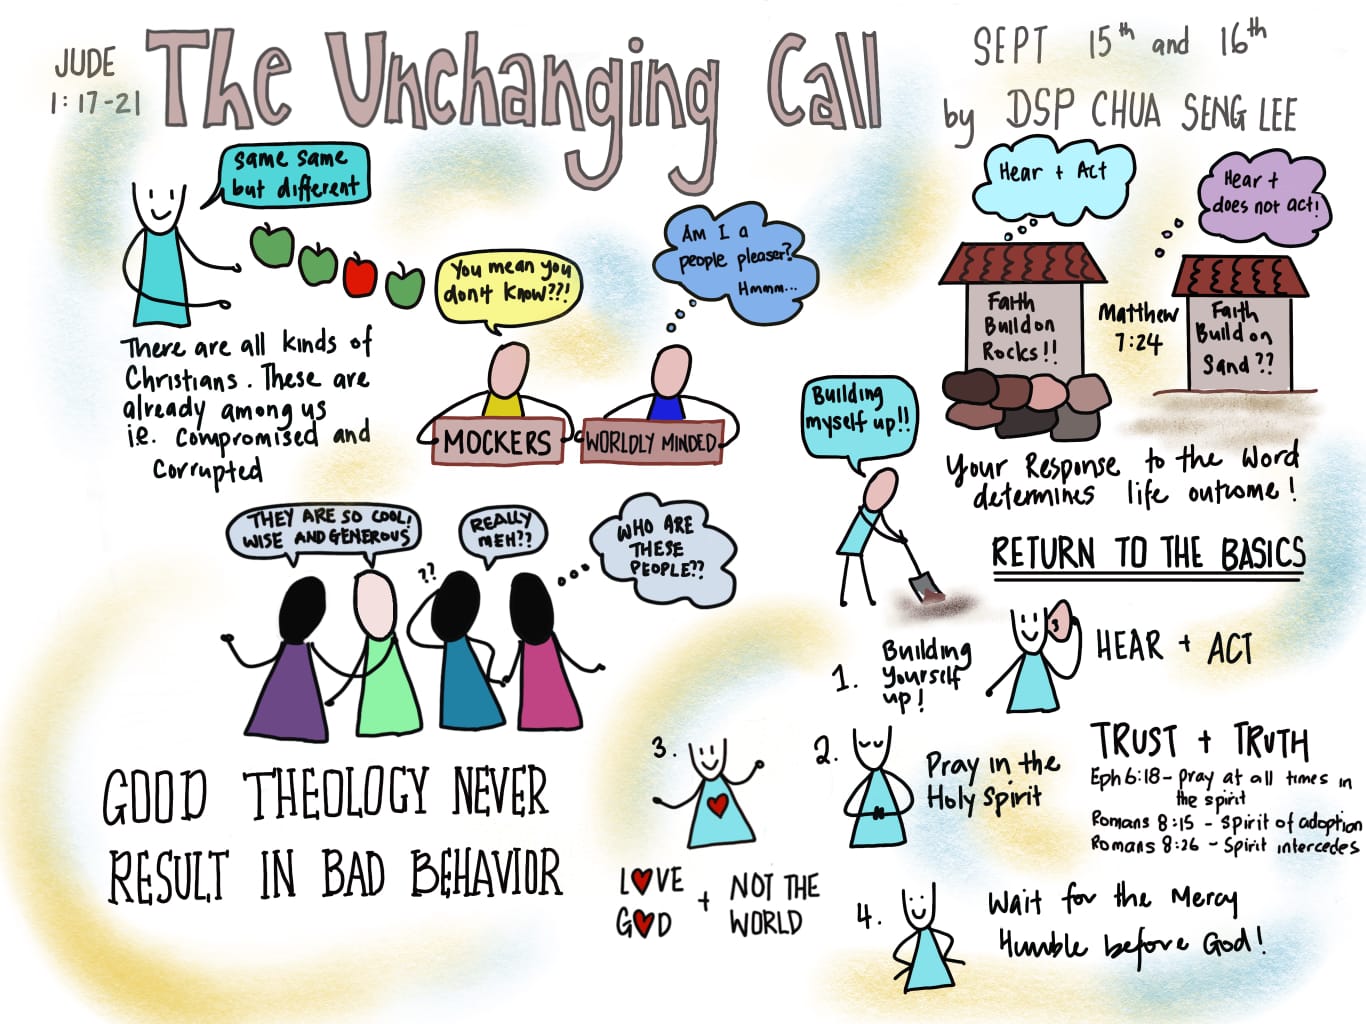 JUDE
1:17-21
The Unchanging Call
SEPT 15th and 16th
by DSP CHUA SENG LEE
same same
but different
There are all kinds of
Christians. These are
already among us
i.e. compromised and
corrupted
You mean you
don't know??!
MOCKERS
Am I a
people pleaser?
Hmmm...
WORLDLY MINDED
Hear + Act
Faith
Build on
Rocks!!
Matthew
7:24
Hear +
does not act!
Faith
Build on
Sand??
Your Response to the Word
determines life outcome!
THEY ARE SO COOL!
WISE AND GENEROUS
REALLY
MEH??
??
WHO ARE
THESE
PEOPLE??
GOOD THEOLOGY NEVER
RESULT IN BAD BEHAVIOR
RETURN TO THE BASICS
Building
myself up!!
1. Building
Yourself
up!
HEAR + ACT
2. Pray in the
Holy Spirit
TRUST + TRUTH
Eph 6:18 - pray at all times in
the spirit
Romans 8:15 - Spirit of adoption
Romans 8:26 - Spirit intercedes
3.
LOVE
GOD
+
NOT THE
WORLD
4. Wait for the Mercy
Humble before God!